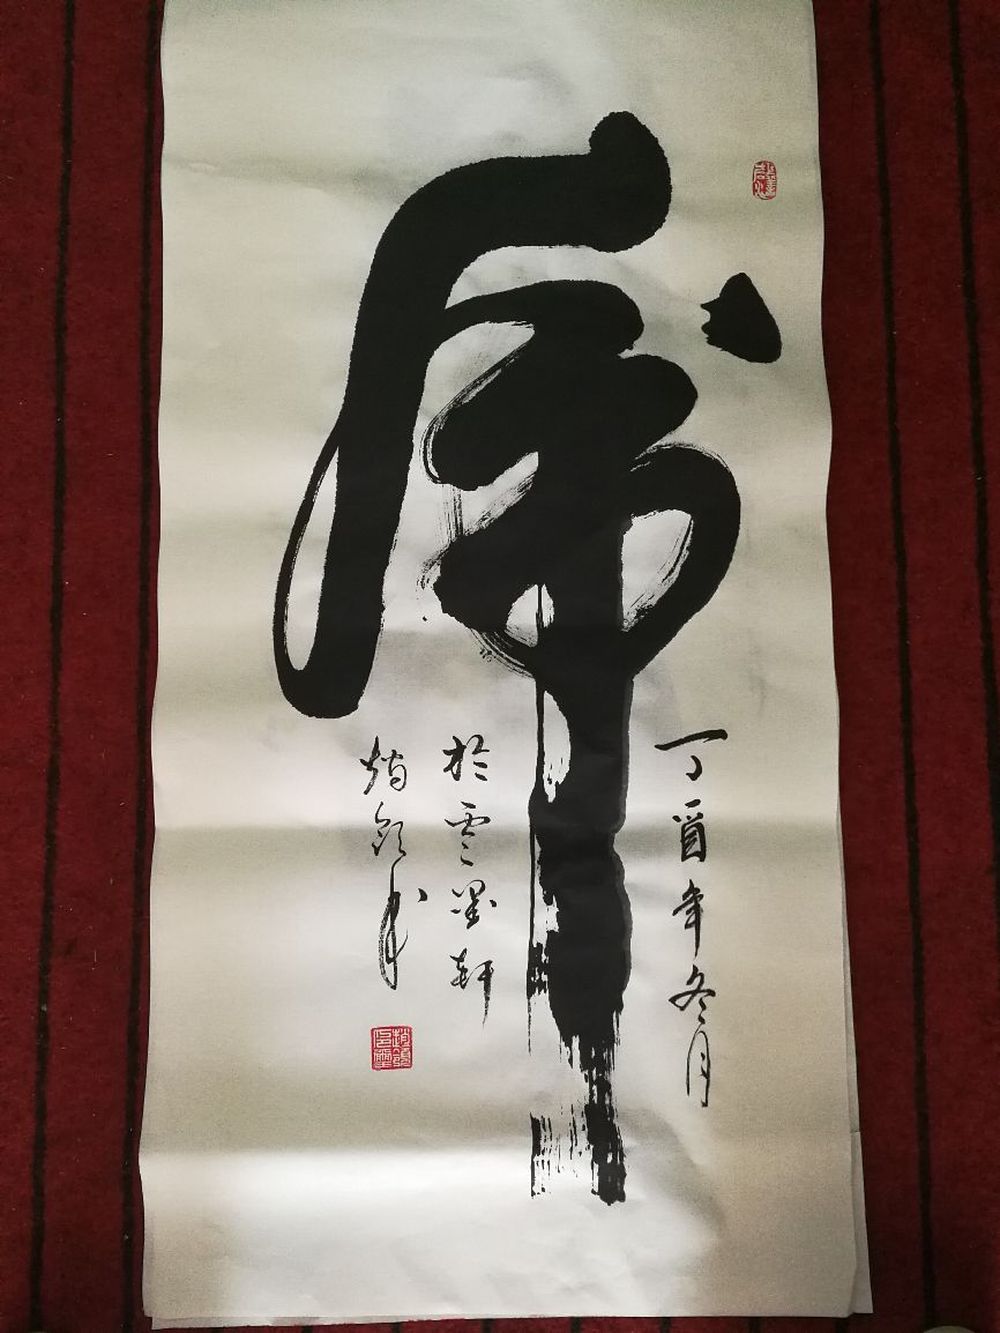 虎
丁酉年冬月
於雲墨轩
书